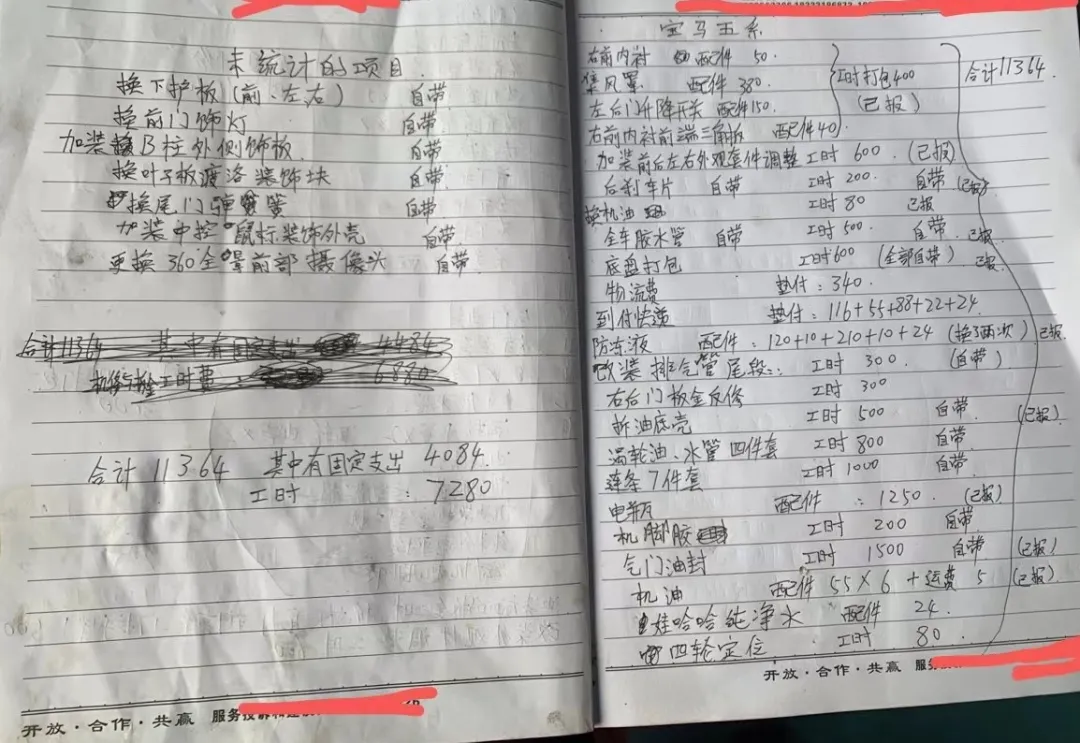 未统计的项目
换下护板(前、左、右) 自带
换前门饰灯 自带
加装B柱外侧饰板. 自带
换叶子板渡洛装饰块 自带
换尾门弹簧 自带
加装中控鼠标装饰外壳 自带.
更换360全景前部摄像头 自带.
合计11364 其中有固定支出 4484
工时费 6880
合计 11364 其中有固定支出 4084.
工时 : 7280
开放·合作·共赢 服务投诉和
宝马五系
右前内衬 配件 50.
集风罩 配件 380.
左后门升降开关 配件150.
右前内衬前端三角板 配件40
工时打包400
(已报)
合计11364.
加装前后左右外观套件调整 工时 600. (已报)
后刹车片 自带 工时 200. 自带 (已报)
换机油 工时 80 已报
全车胶水管 自带 工时500. 自带. 已报
底盘打包 工时600 (全部自带) 已报.
物流费 垫付: 340.
到付快递 垫付: 116+55+88+22+24.
防冻液 配件: 120+10+210+10+24 (换了两次) 已报
改装排气管尾段: 工时 300. (自带)
右后门板金反修 工时 300
拆油底壳 工时 500 自带 (已报)
涡轮油、水管四件套 工时 800 自带
连条7件套 工时 1000 自带.
电瓶 配件 : 1250. (已报)
机脚胶 工时 200 自带
气门油封 工时 1500 自带 (已报)
机油 配件 55×6 +运费 5 (已报)
娃哈哈纯净水 配件 24.
四轮定位 : 工时 80.
开放·合作·共赢 服务